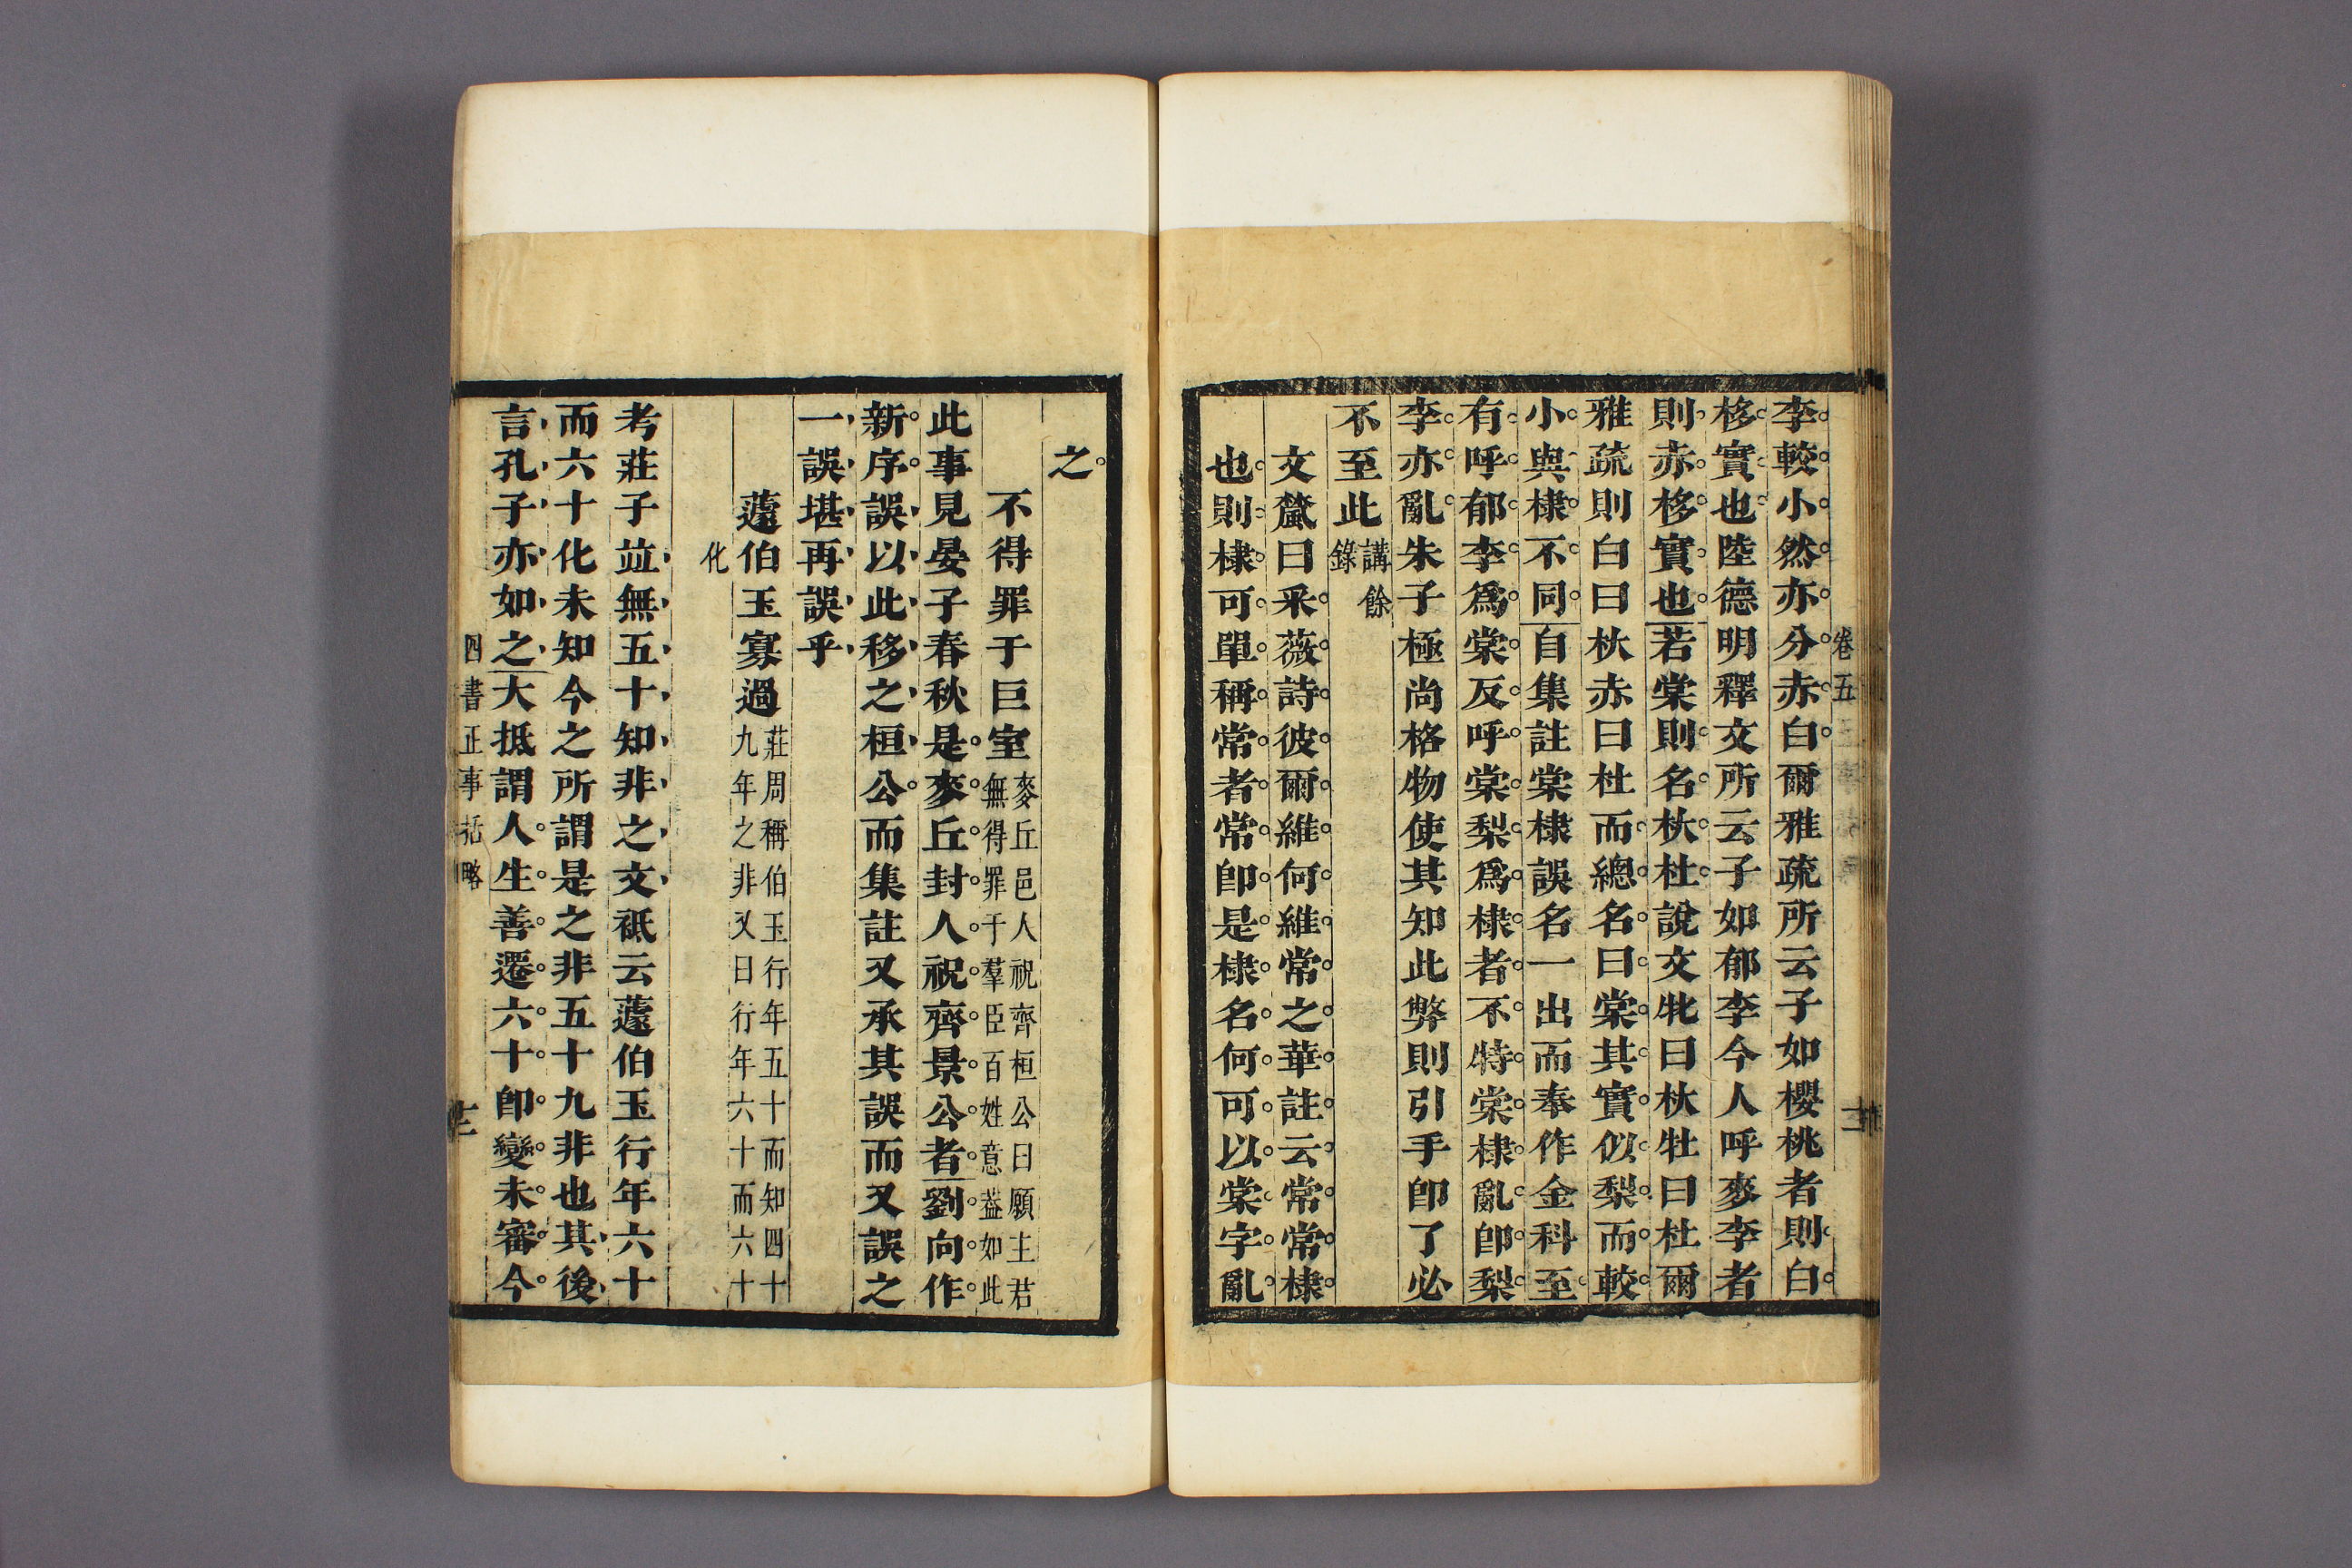 卷五
十二
李較小然亦分赤白爾雅疏所云子如櫻桃者則白
栘實也陸德明釋文所云子如郁李今人呼麥李者
則赤栘實也若棠則名杕杜說文牝曰杕牡曰杜爾
雅疏則白曰杕赤曰杜而總名曰棠其實似梨而較
小與棣不同自集註棠棣誤名一出而奉作金科至
有呼郁李爲棠反呼棠梨爲棣者不特棠棣亂卽梨
李亦亂朱子極尚格物使其知此弊則引手卽了必
不至此講餘
錄
文釐曰采薇詩彼爾維何維常之華註云常常棣
也則棣可單稱常者常卽是棣名何可以棠字亂
之
不得罪于巨室麥丘邑人祝齊桓公曰願主君
無得罪于羣臣百姓意益如此
此事見晏子春秋是麥丘封人祝齊景公者劉向作
新序誤以此移之桓公而集註又承其誤而又誤之
一誤堪再誤乎
蘧伯玉寡過莊周稱伯玉行年五十而知四十
九年之非又曰行年六十而六十
化
考莊子竝無五十知非之文祇云蘧伯玉行年六十
而六十化未知今之所謂是之非五十九非也其後
言孔子亦如之大抵謂人生善遷六十卽變未審今
四書正事括略
十三